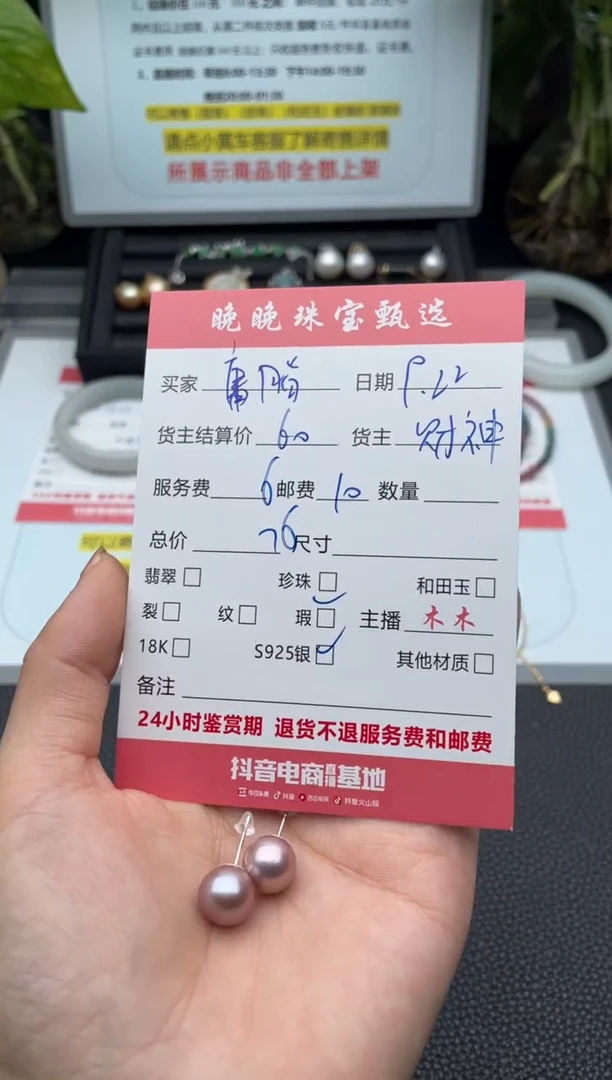 请点小黄车客服了解寄售详情
所展示商品非全部上架
晚晚珠宝甄选
买家 日期 9.22
货主结算价 60 货主 财神
服务费 6 邮费 10 数量
总价 76 尺寸
翡翠 珍珠 和田玉
裂 纹 瑕 主播 木木
18K S925银 其他材质
备注
24小时鉴赏期 退货不退服务费和邮费
抖音电商直播基地
今日头条 抖音 西瓜视频 抖音火山版